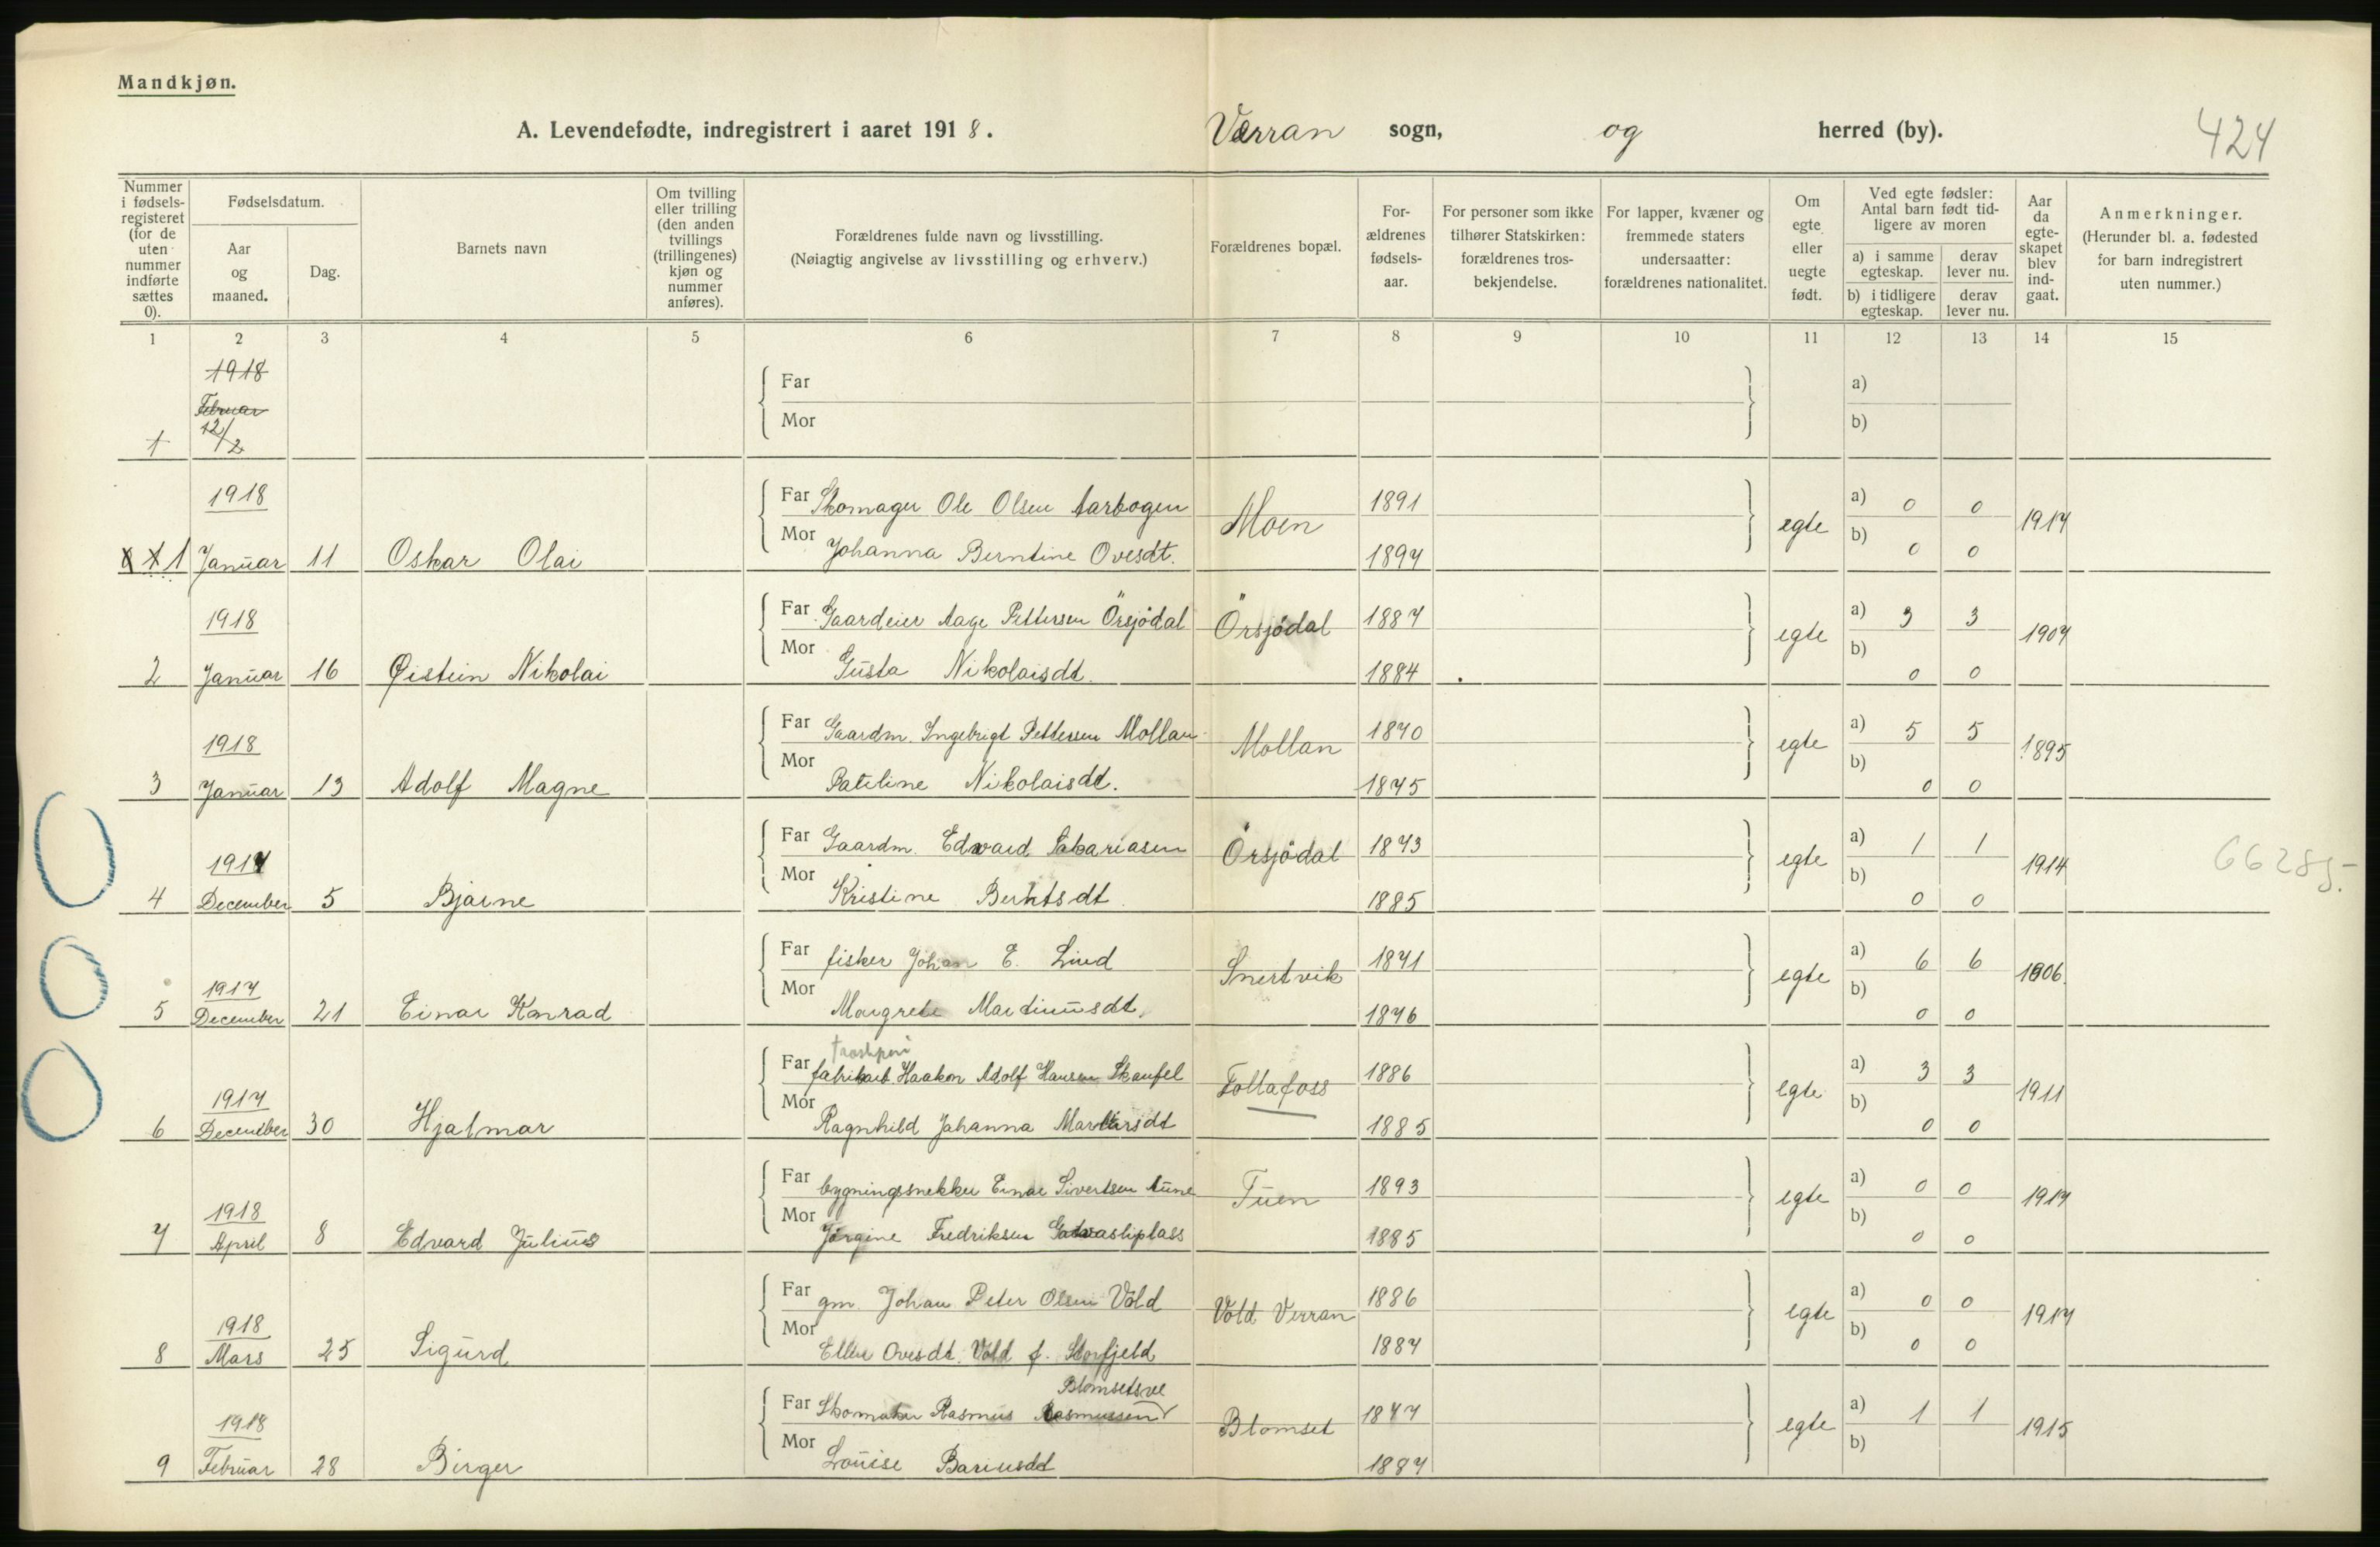 Mandkjøn.
A. Levendefødte, indregistrert i aaret 1918. Verran sogn, og herred (by). 424
Nummer i fødsels-registeret (for de uten nummer indførte sættes 0).
Fødselsdatum.
Aar og maaned.
Dag.
Barnets navn
Om tvilling eller trilling (den anden tvillings (trillingenes) kjøn og nummer anføres).
Forældrenes fulde navn og livsstilling.
(Nøiagtig angivelse av livsstilling og erhverv.)
Forældrenes bopæl.
For-ældrenes fødsels-aar.
For personer som ikke tilhører Statskirken: forældrenes tros-bekjendelse.
For lapper, kvæner og fremmede staters undersaatter: forældrenes nationalitet.
Om egte eller uegte født.
Ved egte fødsler: Antal barn født tid-ligere av moren
a) i samme egteskap. derav lever nu.
b) i tidligere egteskap. derav lever nu.
Aar da egte-skapet blev ind-gaat.
Anmerkninger.
(Herunder bl. a. fødested for barn indregistrert uten nummer.)
1 2 3 4 5 6 7 8 9 10 11 12 13 14 15
1918
Februar
12/2
1
Far a)
Mor b)
1918 Far Skomager Ole Olsen Aarbogen Moen 1891 egte a) 0 0 1917
1 Januar 11 Oskar Olai Mor Johanna Berntine Ovesdt. 1897 b) 0 0
1918 Far Gaardeier Aage Pettersen Örsjödal Örsjödal 1887 egte a) 3 3 1907
2 Januar 16 Øistein Nikolai Mor Gusta Nikolaisdt. 1884 b) 0 0
1918 Far Gaardm. Ingebrigt Pettersen Mollan Mollan 1870 egte a) 5 5 1895
3 Januar 13 Adolf Magne Mor Nikolaisdt. 1875 b) 0 0
1917 Far Gaardm. Edvard Sakariasen Örsjödal 1873 egte a) 1 1 1914 66285-
4 December 5 Bjarne Mor Kristine Berntsdt. 1885 b) 0 0
1917 Far fisker Johan E. Lind Snertvik 1871 egte a) 6 6 1906
5 December 21 Einar Konrad Mor Margrete Martinusdt. 1876 b) 0 0
1917 Far fabrikarb. Haakon Adolf Hansen Skaufel Follafoss 1886 egte a) 3 3 1911
6 December 30 Hjalmar Mor Ragnhild Johanna 1885 b) 0 0
1918 Far bygningssnekker Einar Sivertsen Aune Tuen 1893 egte a) 0 0 1917
7 April 8 Edvard Julius Mor Jørgine Fredriksen 1885 b) 0 0
1918 Far gm. Johan Peter Olsen Vold Vold Verran 1886 egte a) 0 0 1917
8 Mars 25 Sigurd Mor Ellen Ovesdt. Vold f. Storfjeld 1887 b) 0 0
Blomsetsve
1918 Far Skomaker Rasmus Rasmussen Blomset 1877 egte a) 1 1 1915
9 Februar 28 Birger Mor Louise Bariusdt 1887 b)